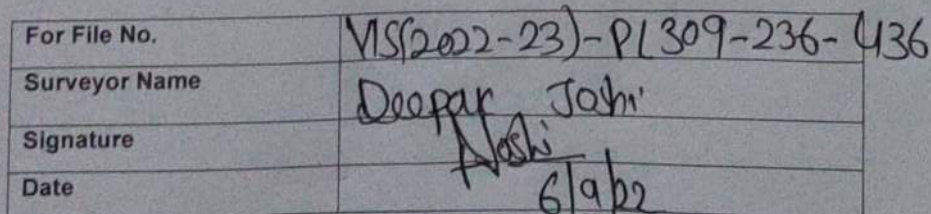 For File No. VIS(2022-23)-PL309-236-436
Surveyor Name Deepak Joshi
Signature Joshi
Date 6/9/22